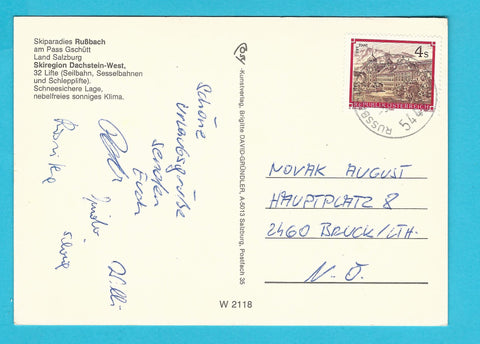 Skiparadies Rußbach
am Pass Gschütt
Land Salzburg
Skiregion Dachstein-West,
32 Lifte (Seilbahn, Sesselbahnen
und Schlepplifte).
Schneesichere Lage,
nebelfreies sonniges Klima.
Schöne
Urlaubsgrüße
senden
Euch
Monika
Willi
Silvia
Kunstverlag, Brigitte DAVID-GRÜNDLER, A-5013 Salzburg, Postfach 35
W 2118
4 S
REPUBLIK ÖSTERREICH
RUSSB
544
NOVAK AUGUST
HAUPTPLATZ 8
2460 BRUCK/LTH.
N.Ö.